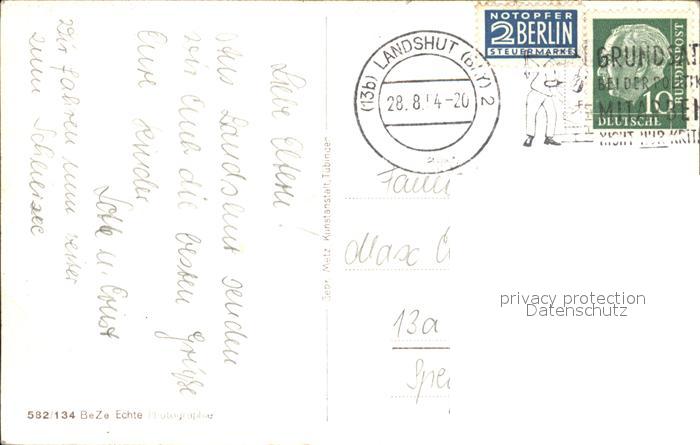 Liebe Eltern!
Aus Landshut senden
wir Euch die besten Grüße
Eure Kinder
Lotte u. Ernst
Wir fahren nun weiter
zum Schliersee
582/134 BeZe Echte Photographie
Gebr. Metz, Kunstanstalt, Tübingen
(13b) LANDSHUT (BAY) 2
28.8.54-20
NOTOPFER
2 BERLIN
STEUERMARKE
DEUTSCHE
BUNDESPOST
10
MITARBEITEN
NICHT NUR KRIT
Fami
Max
13a
Spe
privacy protection
Datenschutz